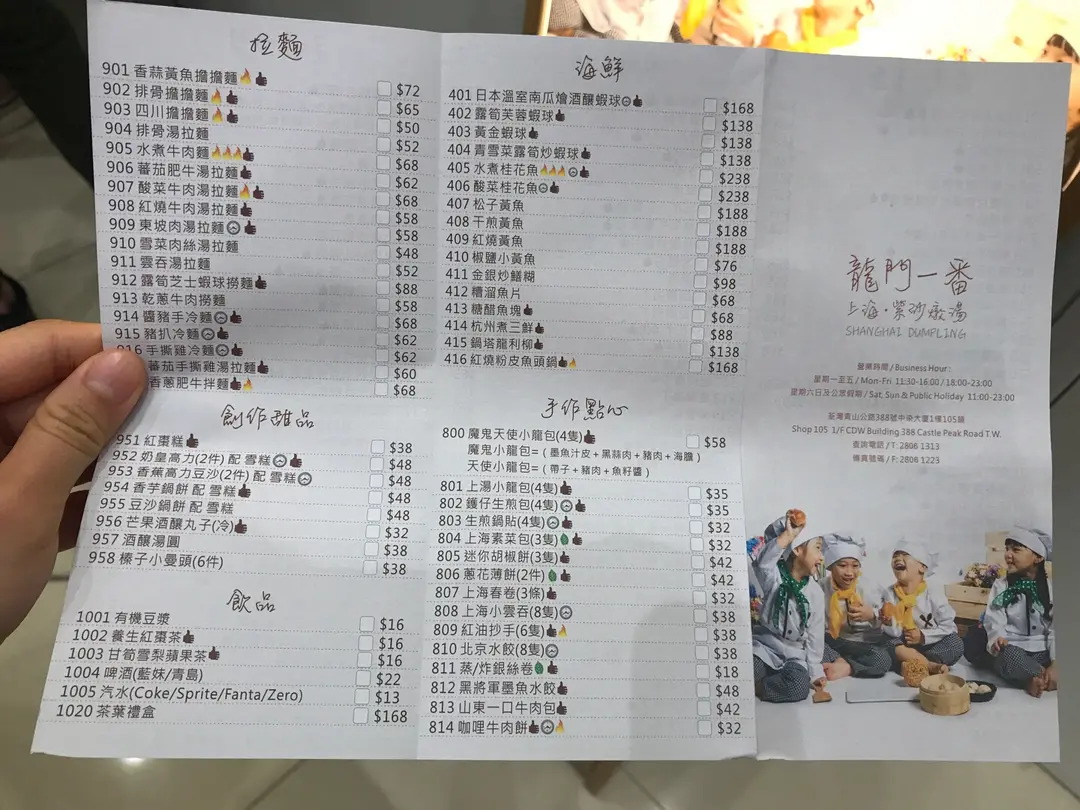 拉麵
901 香蒜黃魚擔擔麵 $72
902 排骨擔擔麵 $65
903 四川擔擔麵 $50
904 排骨湯拉麵 $52
905 水煮牛肉麵 $68
906 蕃茄肥牛湯拉麵 $62
907 酸菜牛肉湯拉麵 $68
908 紅燒牛肉湯拉麵 $58
909 東坡肉湯拉麵 $58
910 雪菜肉絲湯拉麵 $48
911 雲吞湯拉麵 $52
912 露筍芝士蝦球撈麵 $88
913 乾蔥牛肉撈麵 $58
914 醬豬手冷麵 $68
915 豬扒冷麵 $62
916 手撕雞冷麵 $62
蕃茄手撕雞湯拉麵 $60
香蔥肥牛拌麵 $68
創作甜品
951 紅棗糕 $38
952 奶皇高力(2件) 配 雪糕 $48
953 香蕉高力豆沙(2件) 配 雪糕 $48
954 香芋鍋餅 配 雪糕 $48
955 豆沙鍋餅 配 雪糕 $48
956 芒果酒釀丸子(冷) $32
957 酒釀湯圓 $38
958 榛子小曼頭(6件) $38
飲品
1001 有機豆漿 $16
1002 養生紅棗茶 $16
1003 甘筍雪梨蘋果茶 $16
1004 啤酒(藍妹/青島) $22
1005 汽水(Coke/Sprite/Fanta/Zero) $13
1020 茶葉禮盒 $168
海鮮
401 日本溫室南瓜燴酒釀蝦球 $168
402 露筍芙蓉蝦球 $138
403 黃金蝦球 $138
404 青雪菜露筍炒蝦球 $138
405 水煮桂花魚 $238
406 酸菜桂花魚 $238
407 松子黃魚 $188
408 干煎黃魚 $188
409 紅燒黃魚 $188
410 椒鹽小黃魚 $76
411 金銀炒鱔糊 $98
412 糟溜魚片 $68
413 糖醋魚塊 $68
414 杭州煮三鮮 $88
415 鍋塔龍利柳 $138
416 紅燒粉皮魚頭鍋 $168
手作點心
800 魔鬼天使小龍包(4隻) $58
魔鬼小龍包=(墨魚汁皮+黑蒜肉+豬肉+海膽)
天使小龍包=(帶子+豬肉+魚籽醬)
801 上湯小龍包(4隻) $35
802 鑊仔生煎包(4隻) $35
803 生煎鍋貼(4隻) $32
804 上海素菜包(3隻) $32
805 迷你胡椒餅(3隻) $42
806 蔥花薄餅(2件) $42
807 上海春卷(3條) $32
808 上海小雲吞(8隻) $38
809 紅油抄手(6隻) $38
810 北京水餃(8隻) $38
811 蒸/炸銀絲卷 $18
812 黑將軍墨魚水餃 $48
813 山東一口牛肉包 $42
814 咖哩牛肉餅 $32
龍門一番
上海·紫砂燉湯
SHANGHAI DUMPLING
營業時間 / Business Hour:
星期一至五 / Mon-Fri 11:30-16:00 / 18:00-23:00
星期六日及公眾假期 / Sat, Sun & Public Holiday 11:00-23:00
荃灣青山公路388號中央大廈1樓105舖
Shop 105 1/F CDW Building 388 Castle Peak Road T.W.
查詢電話 / T: 2806 1313
傳真號碼 / F: 2806 1223